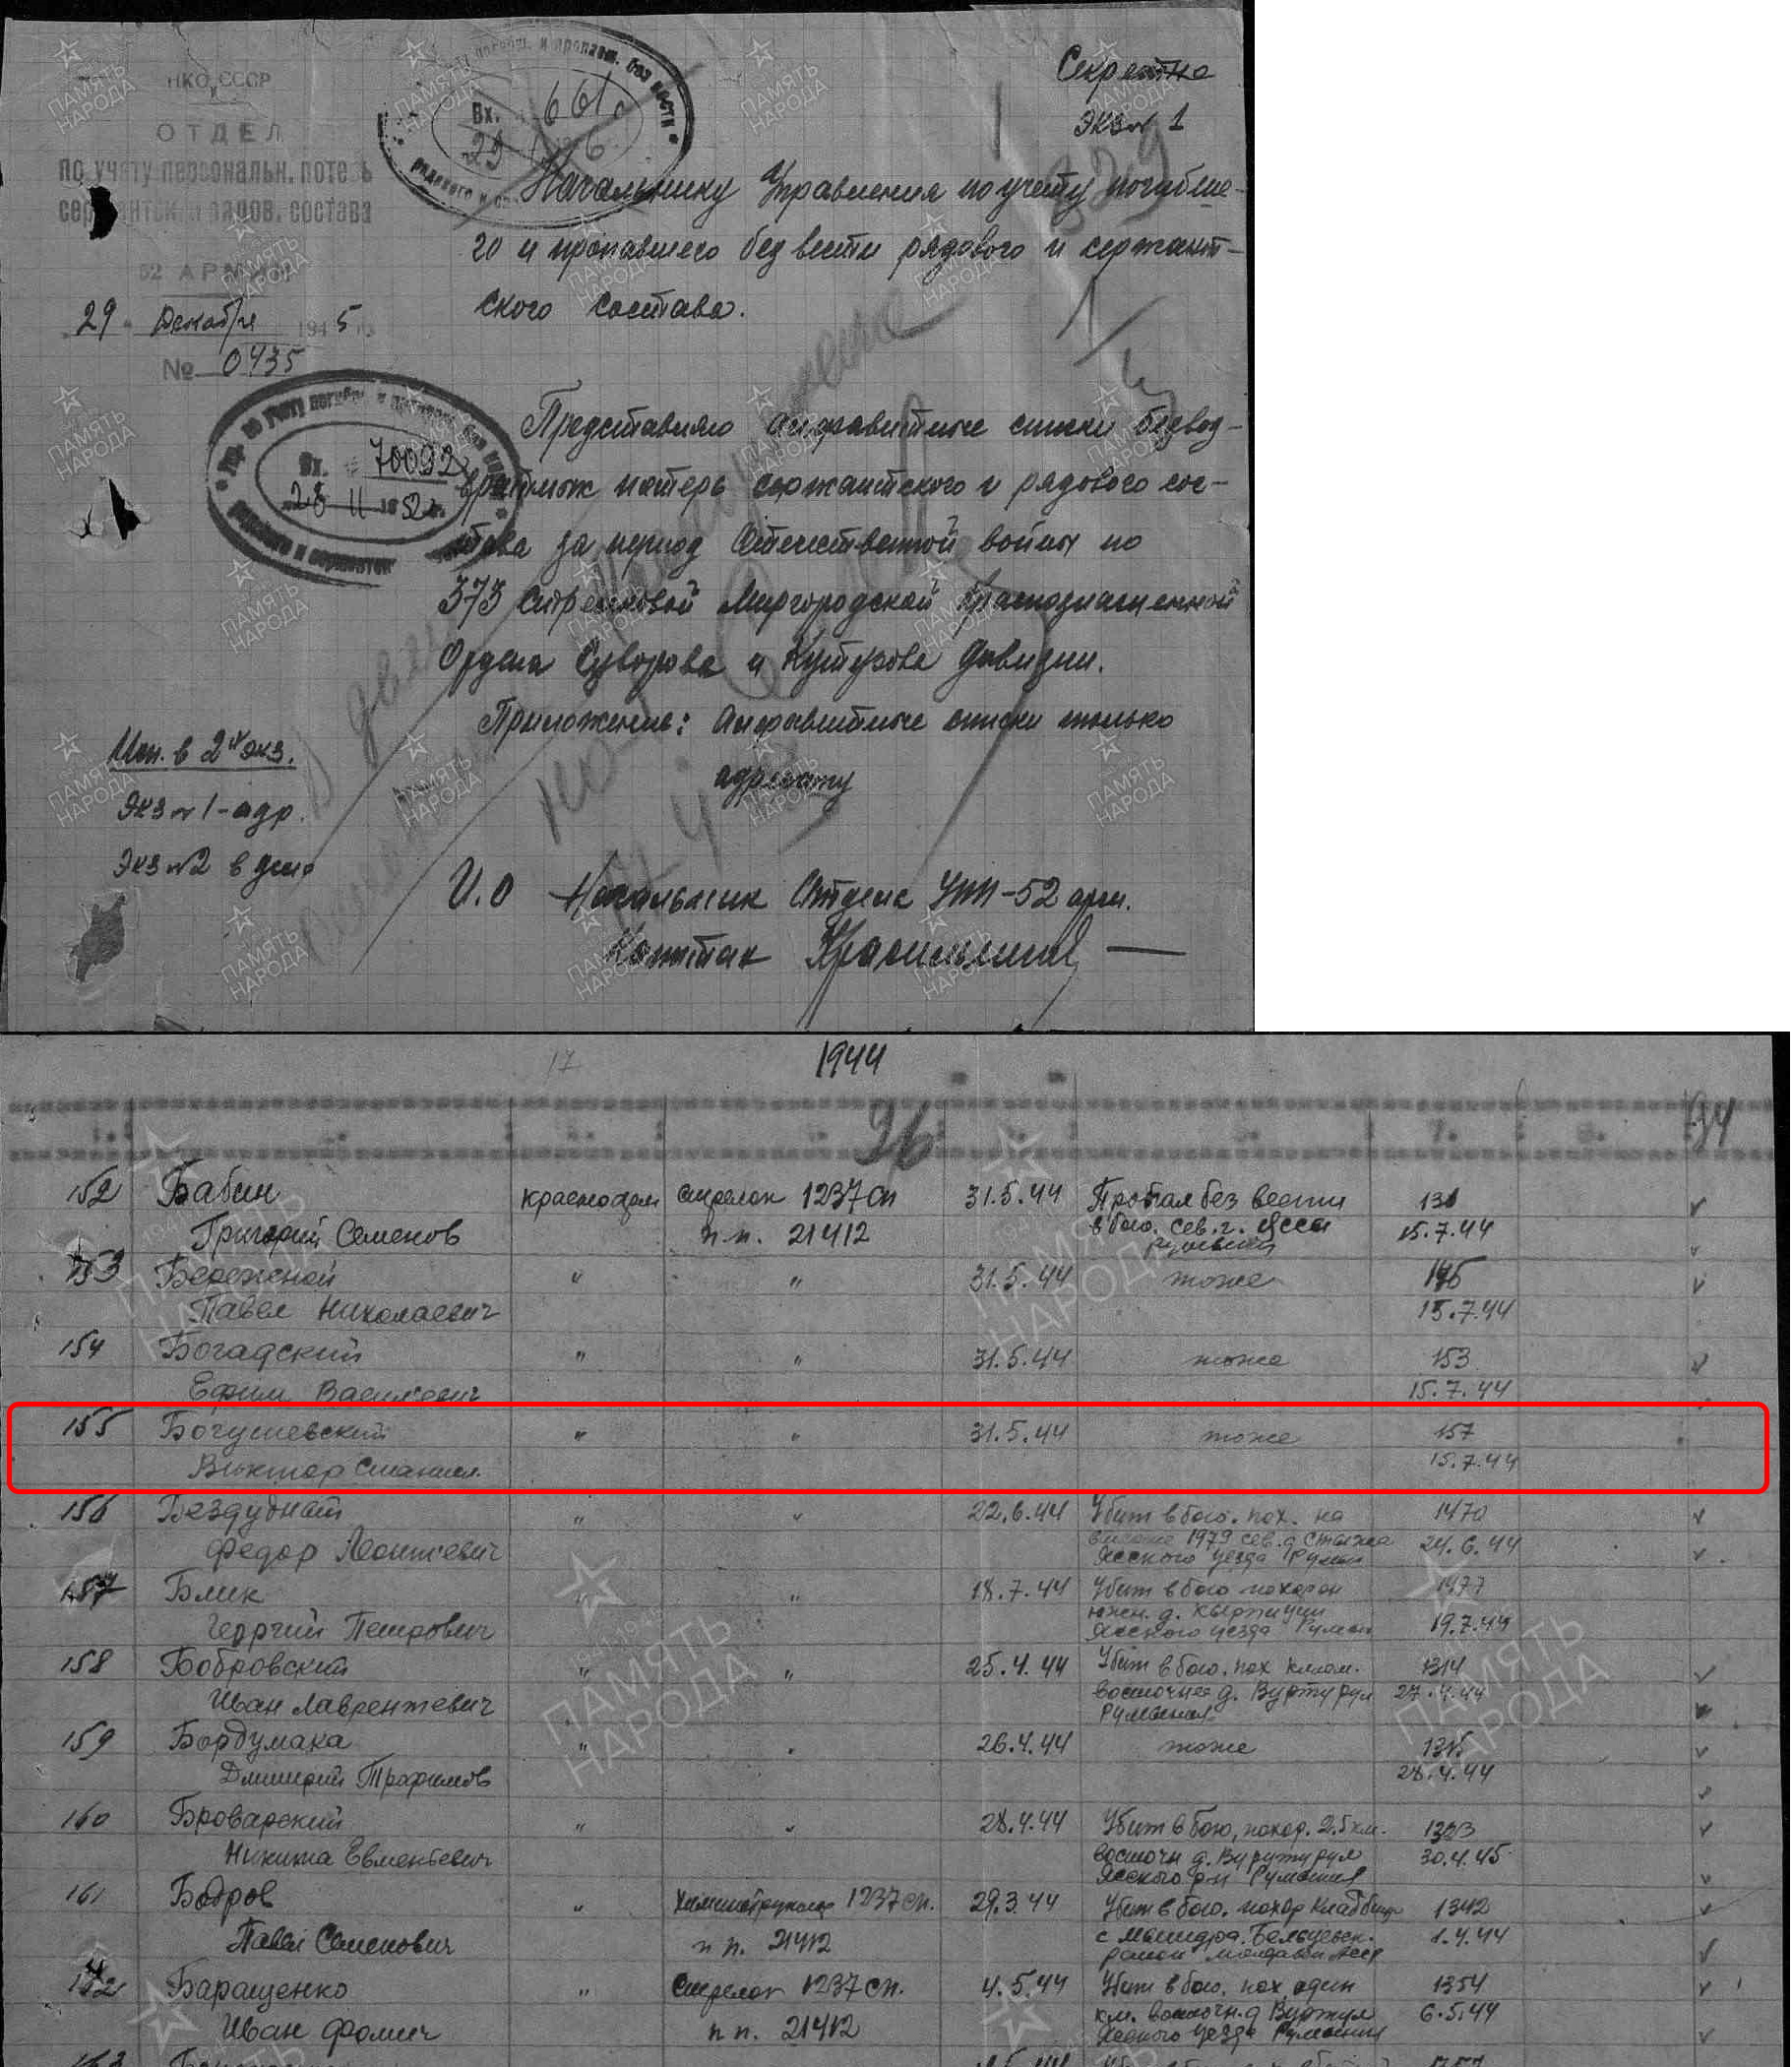 НКО СССР
ОТДЕЛ
по учету персональн. потерь
сержантск. и рядов. состава
52 АРМИИ
29 Декабря 1945 г.
№ 0435
Вх. 661
29 6
рядового и
Секретно
Экз № 1
Начальнику Управления по учету погибше-
го и пропавшего без вести рядового и сержант-
ского состава.
Вх. 70092
28 II 1952 г.
Представляю алфавитные списки безвоз-
вратных потерь сержантского и рядового сос-
тава за период Отечественной войны по
373 Стрелковой Миргородской Краснознаменной
Ордена Суворова и Кутузова дивизии.
Приложение: Алфавитные списки только
адресату
Исп. в 2х экз.
Экз № 1 - адр.
Экз № 2 в дело
И.О Начальник Отдела УПП-52 арм.
Капитан
17 1944
96 94
152 Бабин красноарм стрелок 1237 сп 31.5.44 Пропал без вести 131
Григорий Семенов п.п. 21412 в бою. сев. г. Яссы 15.7.44
Румыния
153 Бережной " " 31.5.44 тоже 145
Павел Николаевич 15.7.44
154 Богадский " " 31.5.44 тоже 153
Ефим Васильевич 15.7.44
155 Богушевский " " 31.5.44 тоже 157
Виктор Станисл. 15.7.44
156 Бездудный " " 22.6.44 Убит в бою. пох. на 1470
Федор Леонтьевич высоте 1979 сев. д Стынка 24.6.44
Ясского уезда Румын
157 Блик " " 18.7.44 Убит в бою похорон 1477
Георгий Петрович южн. д. Кырпицы 19.7.44
Ясского уезда Румын
158 Бобровский " " 25.4.44 Убит в бою. пох 1314
Иван Лаврентевич восточнее д. Вултурул 27.4.44
Румыния
159 Бордумака " " 26.4.44 тоже 1315
Дмитрий Трофимов 28.4.44
160 Броварский " " 28.4.44 Убит в бою, похор. 2.5 км. 1323
Никита Евментьевич восточн д. Вурутурул 30.4.45
Ясского р-н Румыния
161 Бодров " химинструктор 1237 сп. 29.3.44 Убит в бою. похор Кладбище 1342
Павел Семенович п п. 21412 1.4.44
район
162 Баращенко " Стрелок 1237 сп. 4.5.44 Убит в бою. пох. один 1354
Иван Фомич п п. 21412 км. восточн. д Вултурул 6.5.44
Ясского уезда Румыния
163
ПАМЯТЬ НАРОДА